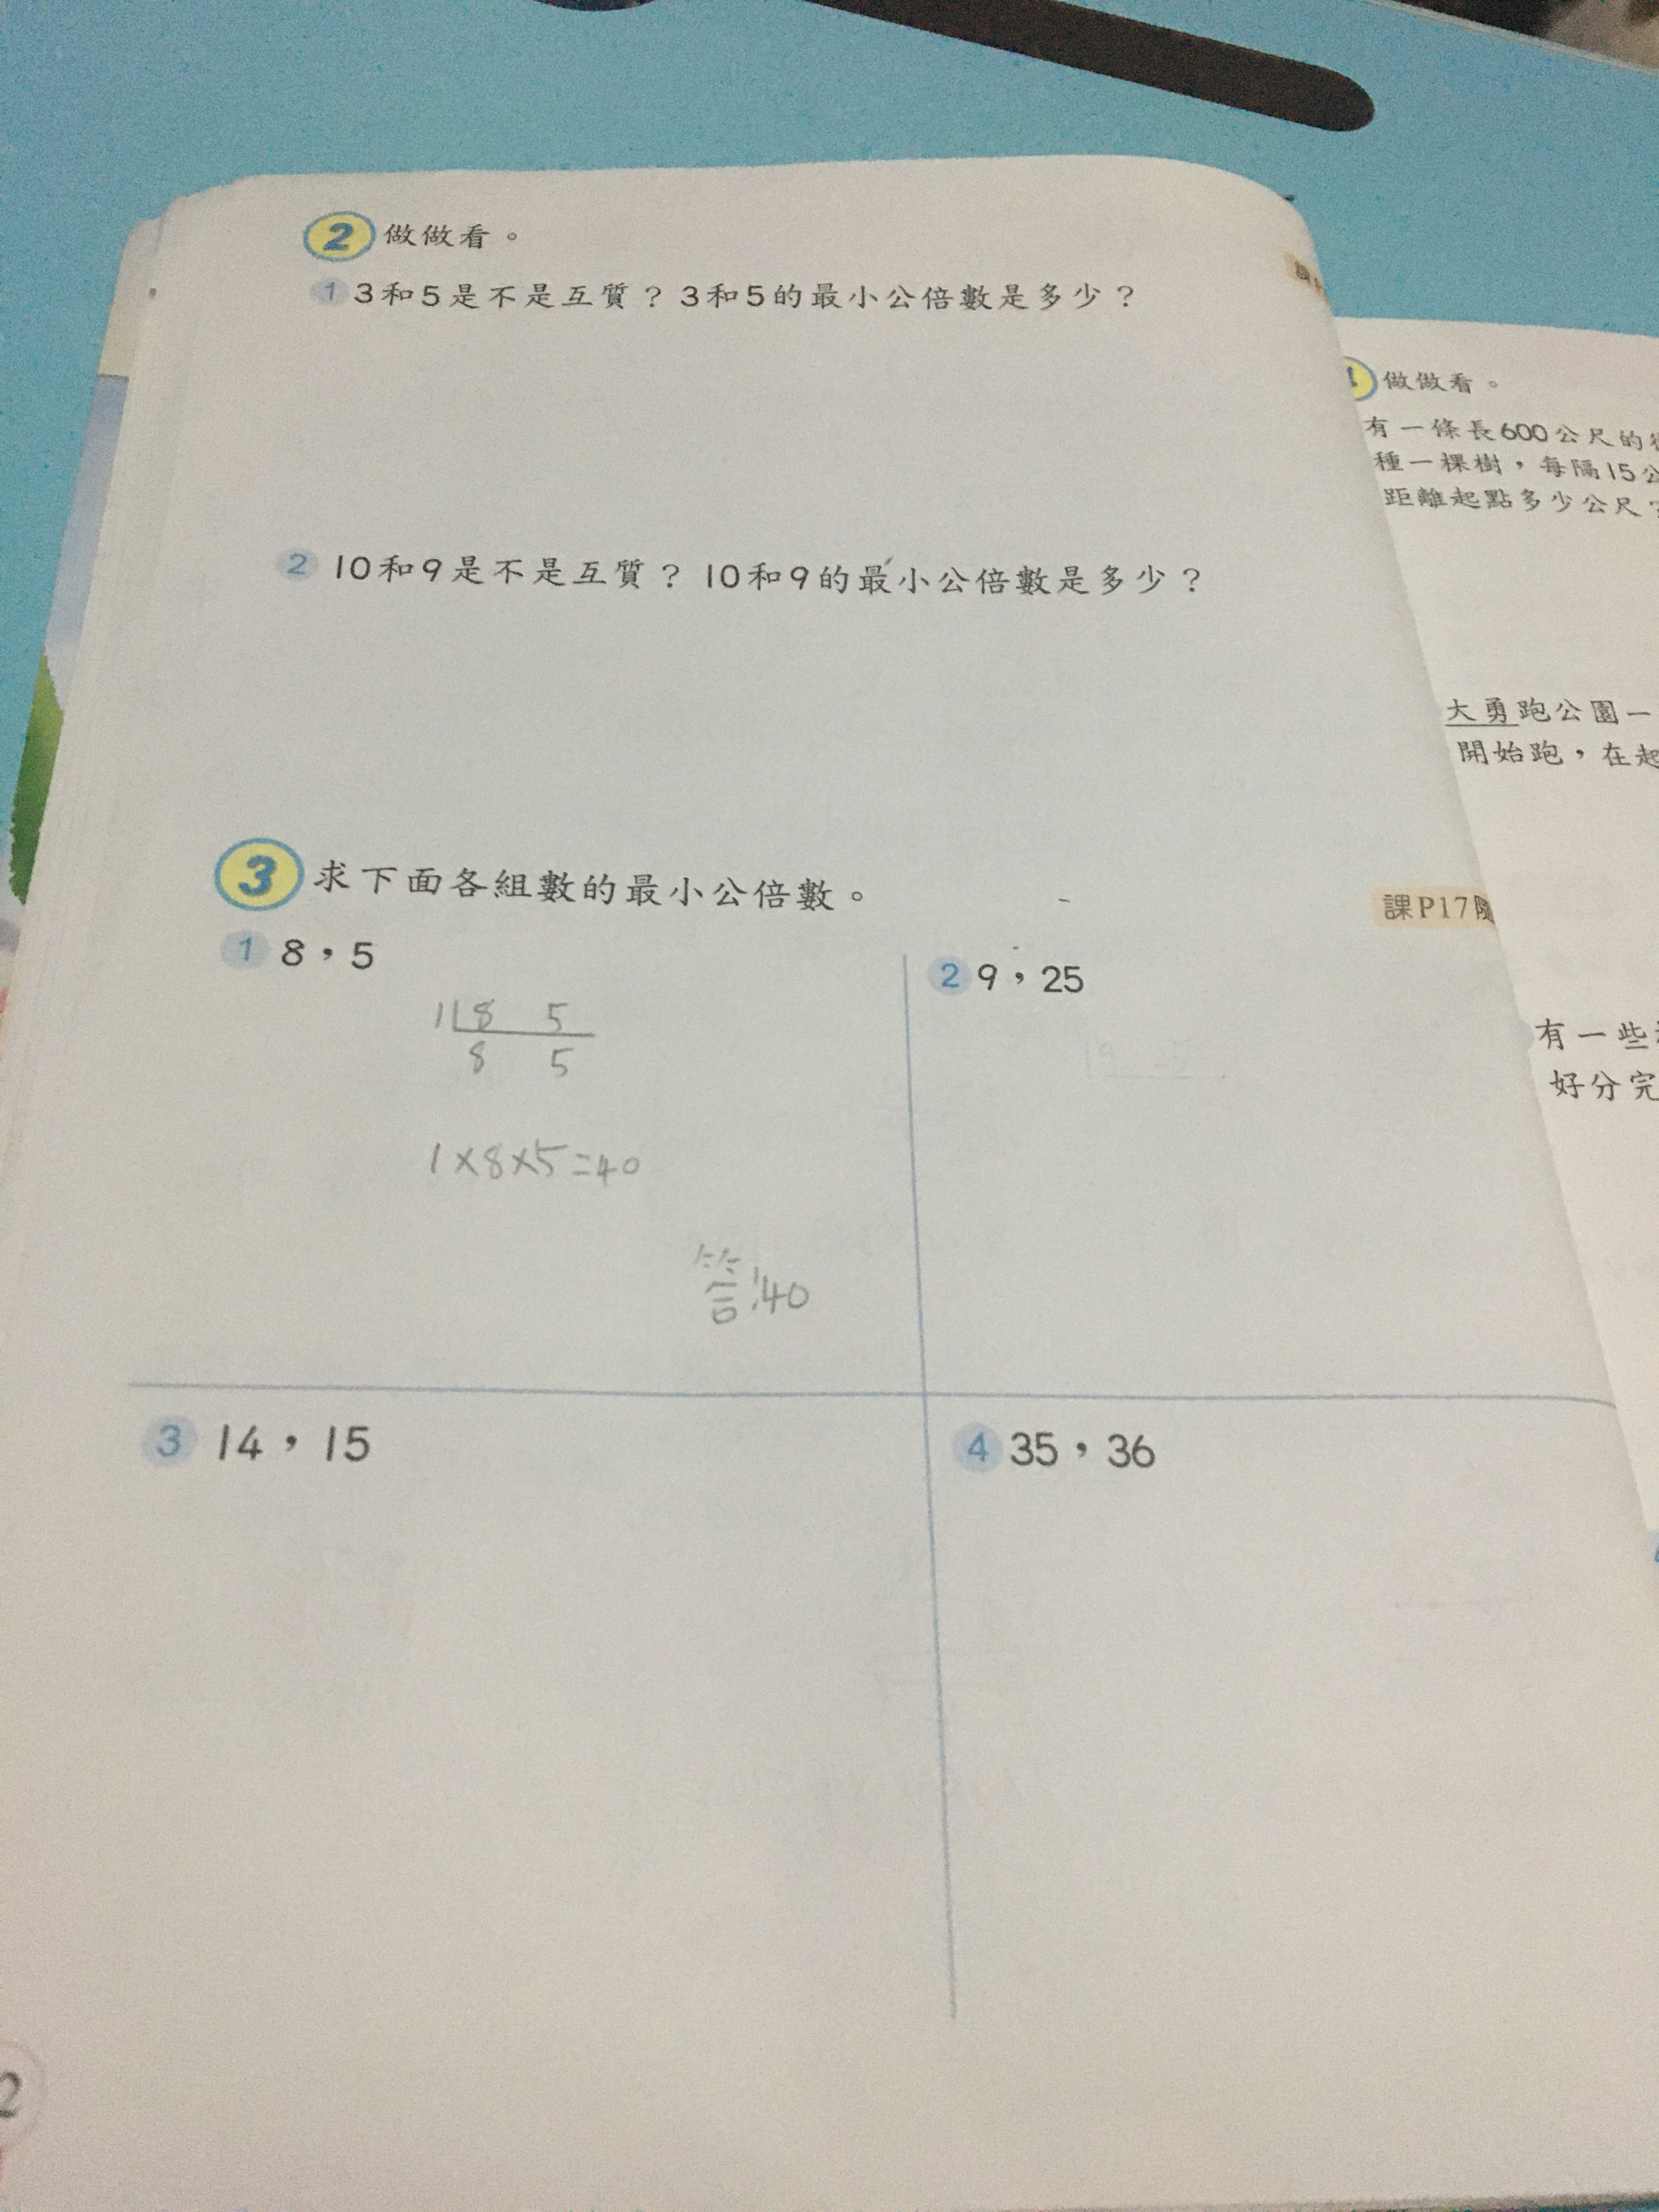 2 做做看。
1 3和5是不是互質？3和5的最小公倍數是多少？
2 10和9是不是互質？10和9的最小公倍數是多少？
3 求下面各組數的最小公倍數。
課P17
1 8，5
1 8 5
8 5
1×8×5=40
答:40
2 9，25
3 14，15
4 35，36
2
做做看。
有一條長600公尺的
種一棵樹，每隔15公
距離起點多少公尺？
大勇跑公園一
開始跑，在起
有一些
好分完